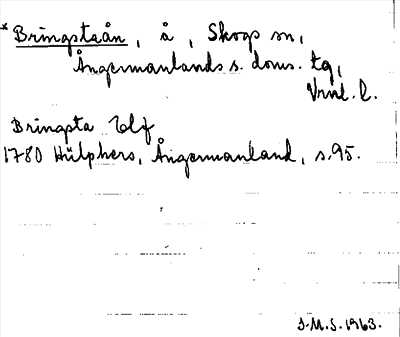 * Bringstaån, å, Skogs sn,
Ångermanlands s. doms. tg,
Vrnl. l.
Bringsta Elf
1780 Hülphers, Ångermanland, s. 95.
S.M.S. 1963.